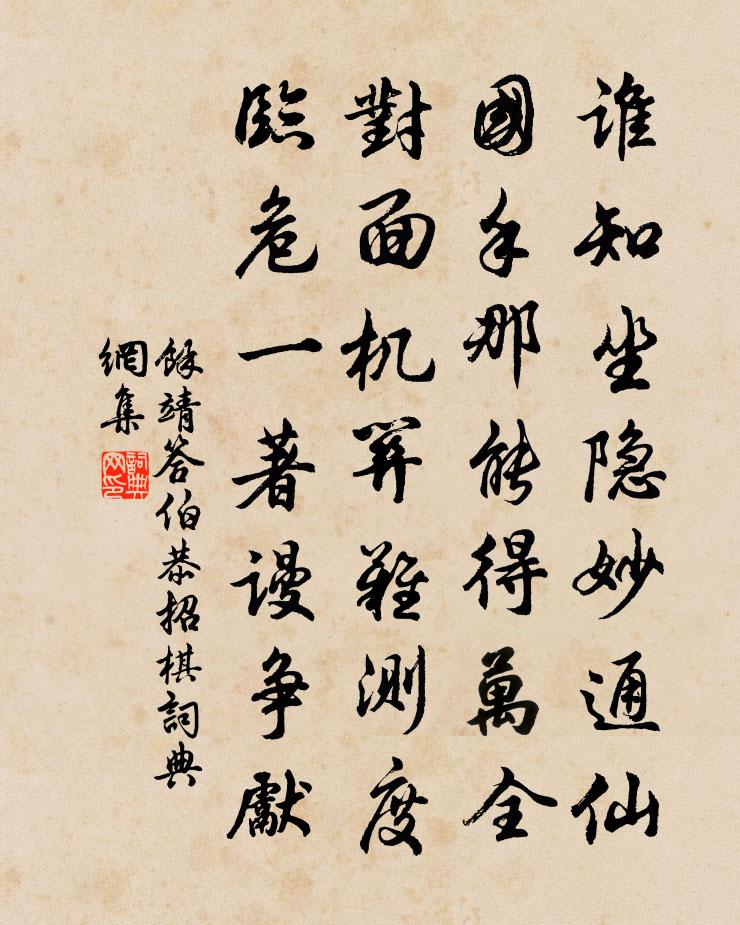 谁知坐隐妙通仙
國手那能得萬全
對面机關難測度
臨危一著謾争獻
餘靖答伯恭招棋詞典
網集
詞典網印